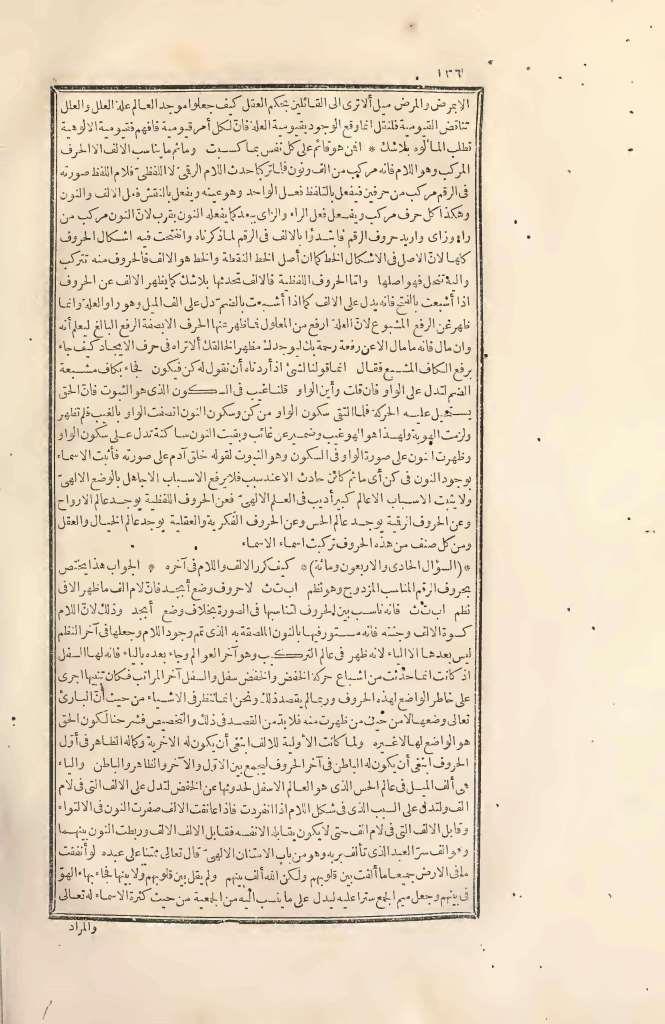 ١٣٦
الامرض والمرض ميل ألا ترى الى القائلين بحكم العقل كيف جعلوا موجد العالم علة العلل والعلل
تناقض القيومية فلنقل انما وقع الوجود بقيومية العلة فانّ لكل أمر قيومية فافهم فقيومية الالوهية
تطلب المألوه بلاشك * أفمن هو قائم على كل نفس بما كسبت وما ثم ما يناسب الالف الا الحرف
المركب وهو اللام فانه مركب من ألف ونون فلما تركبا حدث اللام الرقميّ لا اللفظيّ فلام اللفظ صورته
فى الرقم مركب من حرفين ففعل بالتلفظ فعل الواحد وهو عينه ويفعل بالنقش فعل الالف والنون
وهكذا كل حرف مركب ويفعل فعل الراء والزاى بعد كما يفعله النون بقرب لانّ النون مركب من
راء وزاى وأريد حروف الرقم فابتدؤا بالالف فى الرقم لما ذكرناه وانفتحت فيه اشكال الحروف
كلها لانّ الاصل فى الاشكال الخط كما ان أصل الخط النقطة والخط هو الالف فالحروف منه تتركب
واليه تنحل فهو أصلها وأما الحروف اللفظية فالالف يحدثها بلاشك كما يظهر الالف عن الحروف
اذا أشبعت بالفتح فانه يدل على الالف كما اذا أشبعت بالضم دل على الف الميل وهو واو العلة وانما
ظهر عن الرفع المشبوع لانّ العلة ارفع من المعلول فما ظهر عنها الحرف الا بصفة الرفع البالغ ليعلم أنه
وان مال فانه ما مال الا عن رفعة رحمة بك ليوجدك مظهرا لخالقك ألا تراه فى حرف الايجاد كيف جاء
برفع الكاف المشبع فقال انما قولنا لشئ اذا أردناه أن نقول له كن فيكون فجاء بكاف مشبعة
الضم لتدل على الواو فان قلت وأين الواو قلنا غيب فى السكون الذى هو الثبوت فانّ الحق
يستحيل عليه الحركة فلما التقى سكون الواو من كن وسكون النون اتصفت الواو بالغيب فلم تظهر
ولزمت الهوية ولهذا هو الهو غيب وضمير عن غائب وبقيت النون ساكنة تدل على سكون الواو
وظهرت النون على صورة الواو فى السكون وهو الثبوت لقوله خلق آدم على صورته فأثبت الاسماء
بوجود النون فى كن أى ما ثم كائن حادث الا عند سبب فلا يرفع الاسباب الا جاهل بالوضع الالهىّ
ولا يثبت الاسباب الا عالم كبير أديب فى العلم الالهىّ فعن الحروف اللفظية يوجد عالم الارواح
وعن الحروف الرقمية يوجد عالم الحس وعن الحروف الفكرية والعقلية يوجد عالم الخيال والعقل
ومن كل صنف من هذه الحروف تركبت أسماء الاسماء
*(السؤال الحادى والاربعون ومائة)* كيف كرر الالف واللام فى آخره * الجواب هذا يختص
بحروف الرقم المناسب المزدوج وهو نظم ا ب ت ث لا حروف وضع أبجد فانّ لام الف ما ظهر الا فى
نظم ا ب ت ث فانه ناسب بين الحروف لتناسبها فى الصورة بخلاف وضع أبجد وذلك لانّ اللام
كسوة الالف وجنته فانه مستور فيها بالنون الملصقة به الذى تم وجود اللام وجعلها فى آخر النظم
ليس بعدها الا الياء لانه ظهر فى عالم التركيب وهو آخر العوالم وجاء بعده بالياء فانه لها السفل
اذ كانت انما حدثت من اشباع حركة الخفض والخفض سفل والسفل آخر المراتب فكان تنبيها أجرى
على خاطر الواضع لهذه الحروف وربما لم يقصد ذلك ونحن انما ننظر فى الاشياء من حيث أنّ البارئ
تعالى وضعها لا من حيث من ظهرت منه فلا بدّ من القصد فى ذلك والتخصيص فشرحنا لكون الحق
هو الواضع لها لا غيره ولما كانت الاولية للالف ابتغى أن يكون له الآخرية وكما له الظاهر فى أول
الحروف ابتغى أن يكون له الباطن فى آخر الحروف ليجمع بين الاول والآخر والظاهر والباطن والياء
هى ألف الميل فى عالم الحس الذى هو العالم الاسفل لحدوثها عن الخفض لتدل على الالف التى فى لام
الف ولتدل على السبب الذى فى شكل اللام اذا انفردت فاذا عانقت الالف صغرت النون فى الالتواء
وقابل الالف التى فى لام الف حتى لا يكون يقابله الا نفسه فقابل الالف الالف وربطت النون بينهما
وهو الف سرّ العبد الذى تألف بربه وهو من باب الامتنان الالهىّ قال تعالى ممتنا على عبده لو أنفقت
ما فى الارض جميعا ما ألفت بين قلوبهم ولكن الله ألف بينهم ولم يقل بين قلوبهم ولا بينها فجاء بهاء الهوّ
فى بينهم وجعل ميم الجمع سترا عليه ليدل على ما ينسب اليه من الجمعية من حيث كثرة الاسماء له تعالى
والمراد